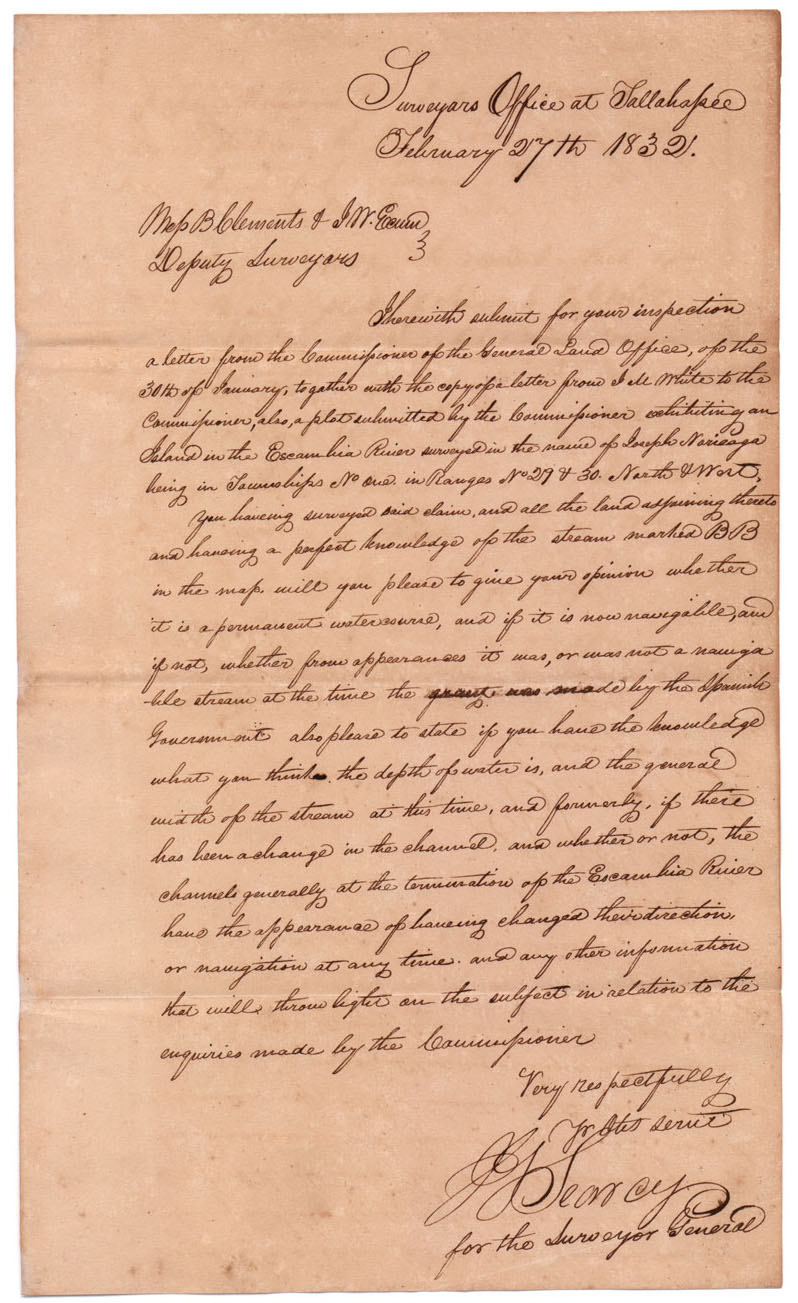 Surveyars Office at Tallahassee
February 27th 1832.
Mess B Clements & J W. Exum
Deputy Surveyars
I herewith submit for your inspection
a letter from the Commissioner of the General Land Office, of the
30th of January, together with the copy of a letter from J M White to the
Commissioner, also, a plot submitted by the Commissioner exhibiting an
Island in the Escambia River surveyed in the name of Joseph Noriega
being in Townships No one. in Ranges No 29 & 30. North & West,
You haveing surveyed said claim, and all the land adjoining thereto
and haveing a perfect knowledge of the stream marked B B
in the map. will you please to give your opinion whether
it is a permanent watercourse, and if it is now navigable, and
if not, whether from appearances it was, or was not a naviga
ble stream at the time the grant was made by the Spanish
Government also please to state if you have the knowledge
what you think the depth of water is, and the general
width of the stream at this time, and formerly, if there
has been a change in the channel, and whether or not, the
channels generally at the termination of the Escambia River
have the appearance of haveing changed their direction,
or navigation at any time. and any other information
that will throw light on the subject in relation to the
enquiries made by the Commissioner
Very respectfully
Yr Obt servt
Searcy
for the Surveyor General